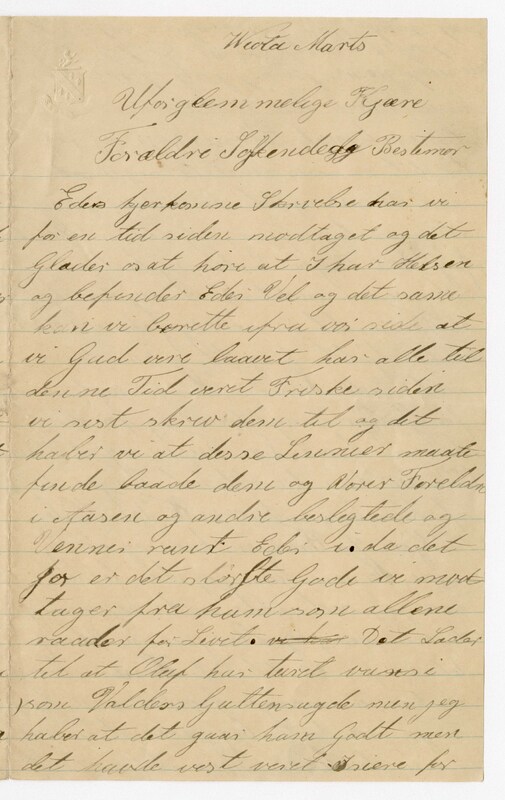 Wiota Marts
Uforglemmelige Kjære
Forældre Søskende og Bestemor
Eders kjerkomne Skrivelse har vi
for en tid siden modtaget og det
Glæder os at høre at I har Helsen
og befinder Eder Vel og det same
kan vi berette ifra vor side at
vi Gud vere laavet har alle til
denne Tid veret Friske siden
vi sist skrev dem til og dit
haber vi at desse Linnier maate
finde baade dem og Vorer Foreldre
i Aasen og andre beslegtede og
Venner runt Eder i. da det
for er det største Gode vi mod
tager fra ham som allene
raader for Livet. vi har Det Lader
til at Oluf har turet
som Valders Guttensagde men jeg
haber at det gaar ham Godt men
det havde vost veret for